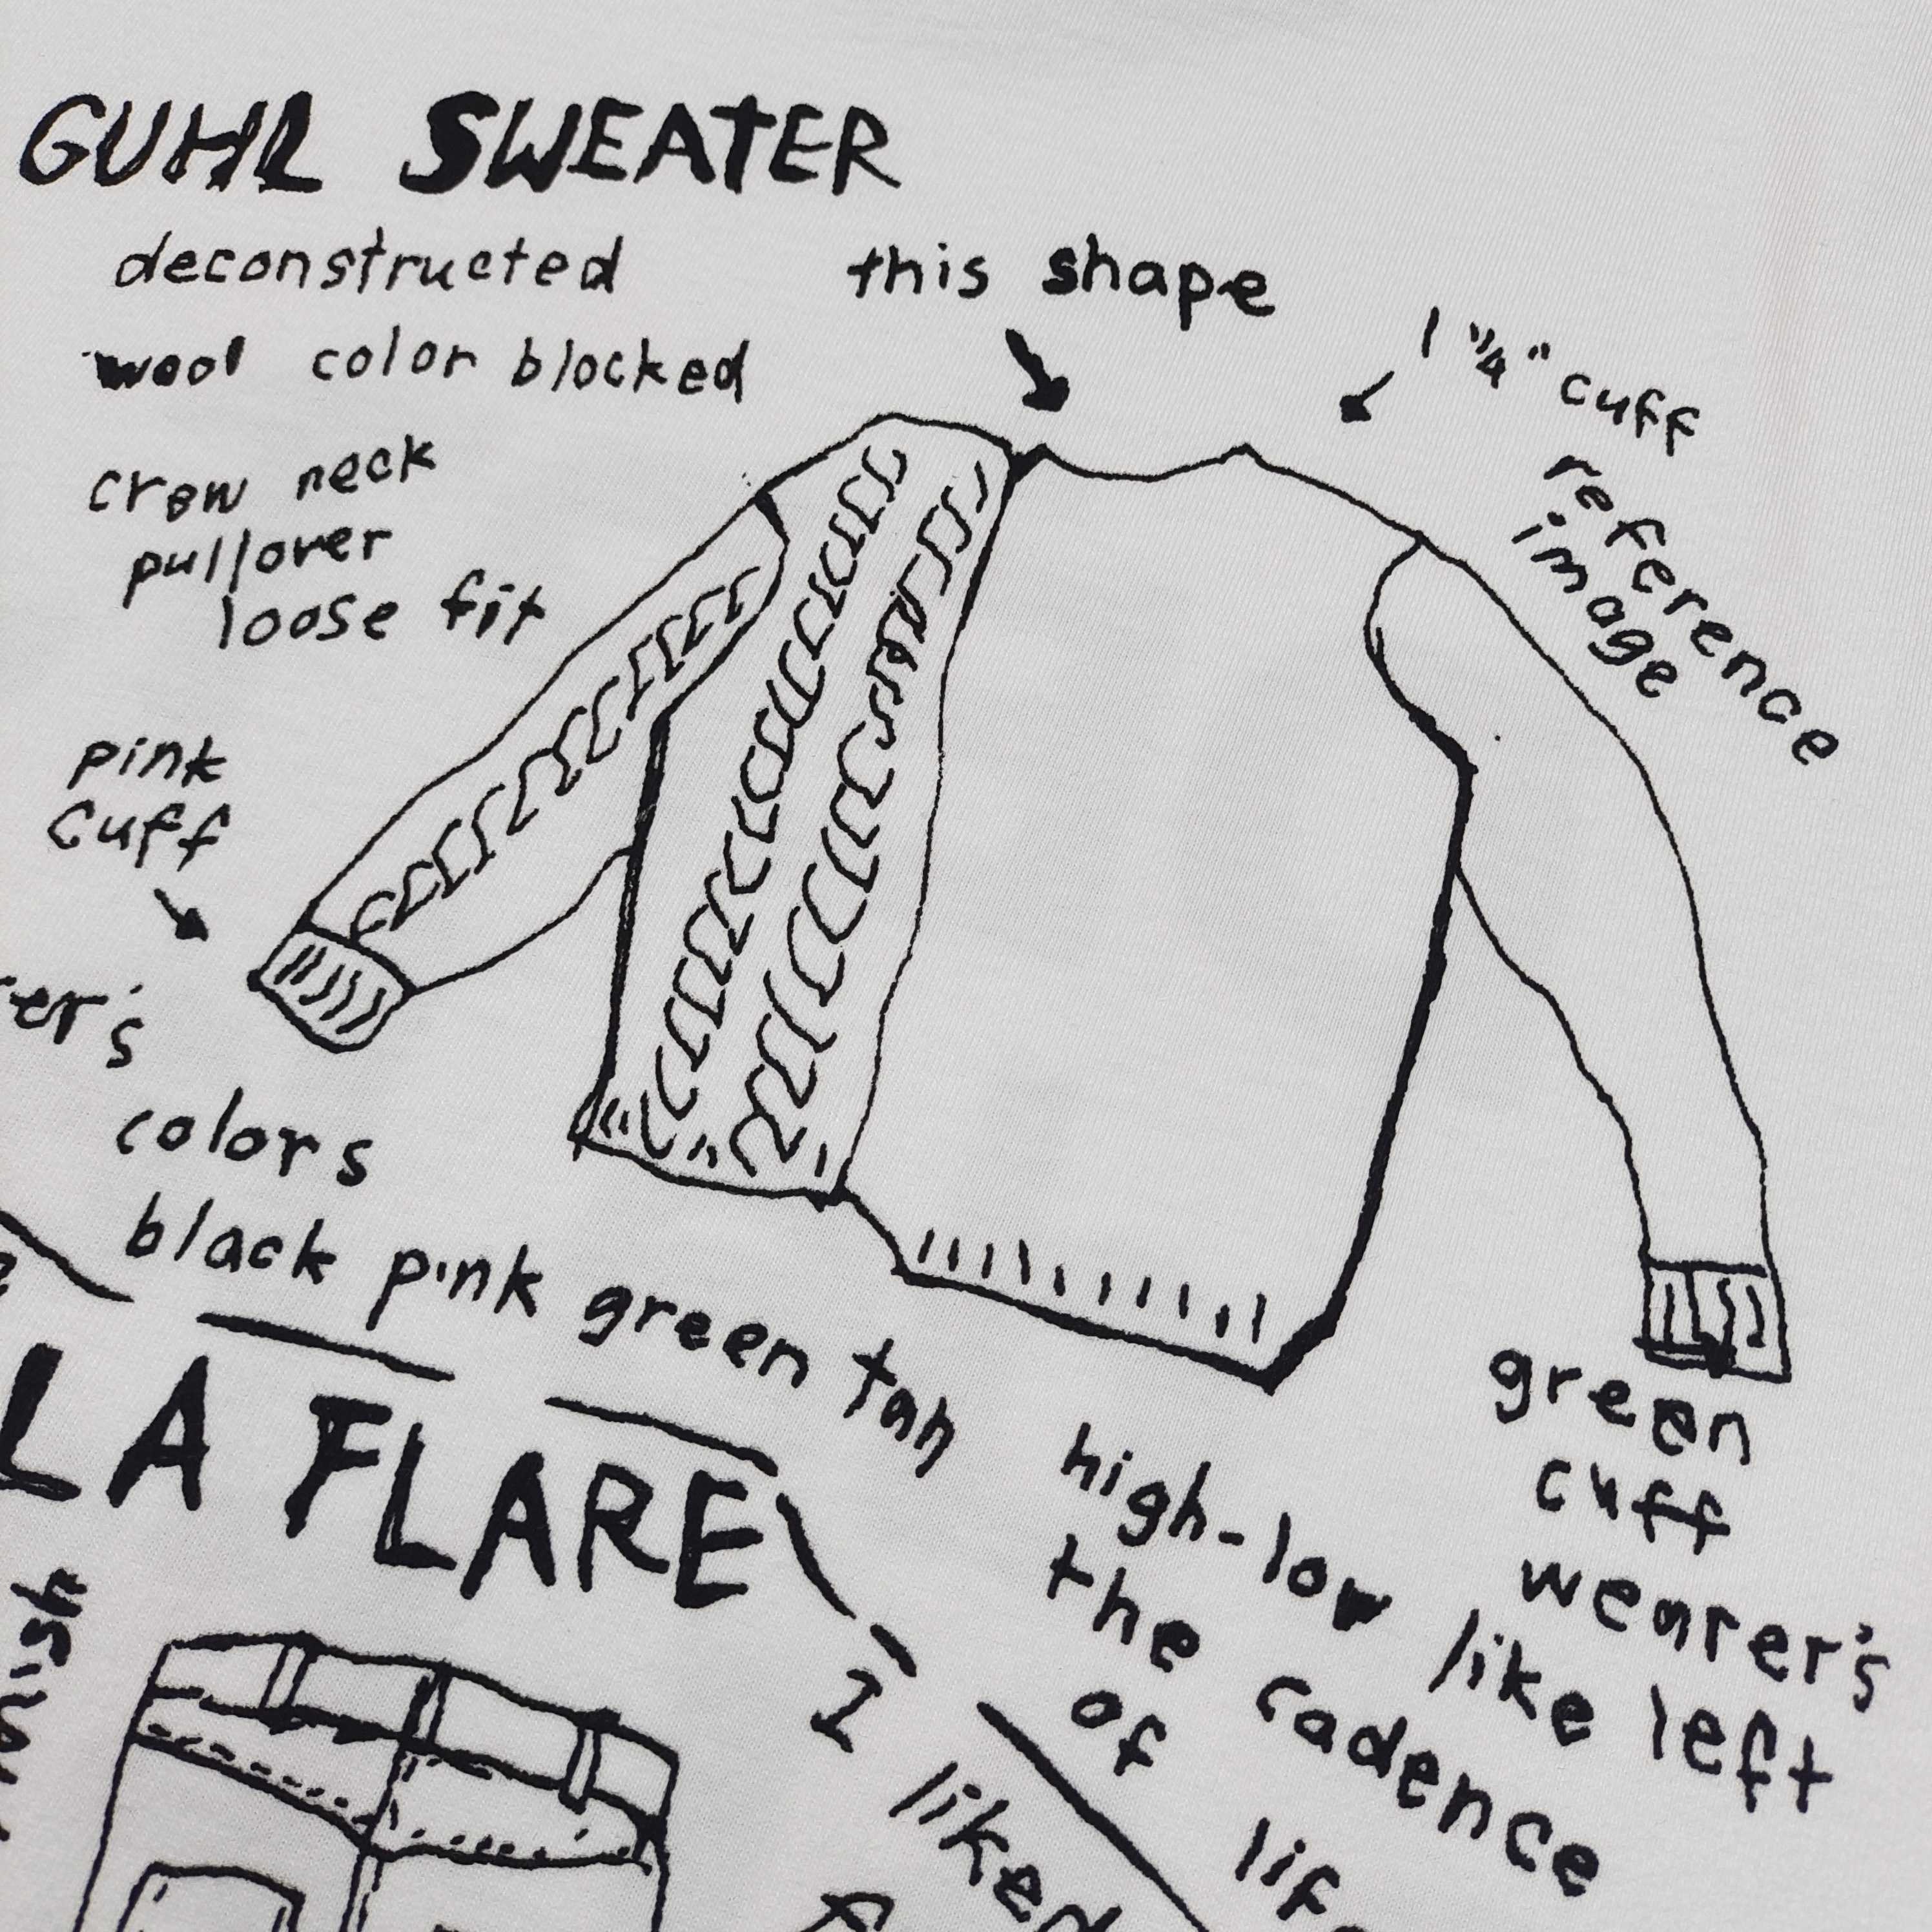 GUHL SWEATER
deconstructed
wool color blocked
crew neck
pullover
loose fit
this shape
1 1/4" cuff
reference
image
pink
cuff
colors
black pink green tan
green
cuff
wearer's
left
high-low like
the cadence
of
LA FLARE
I
liked